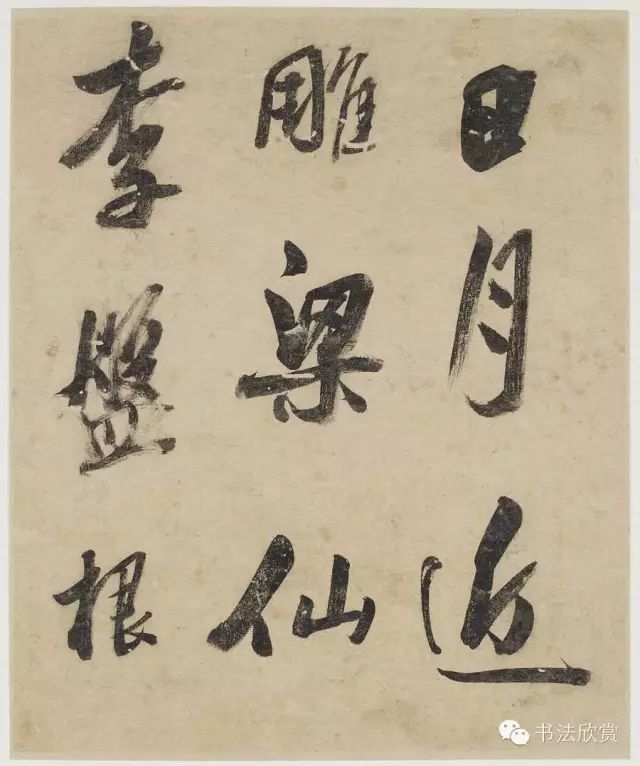 日月近
雕梁仙
李盤根
书法欣赏